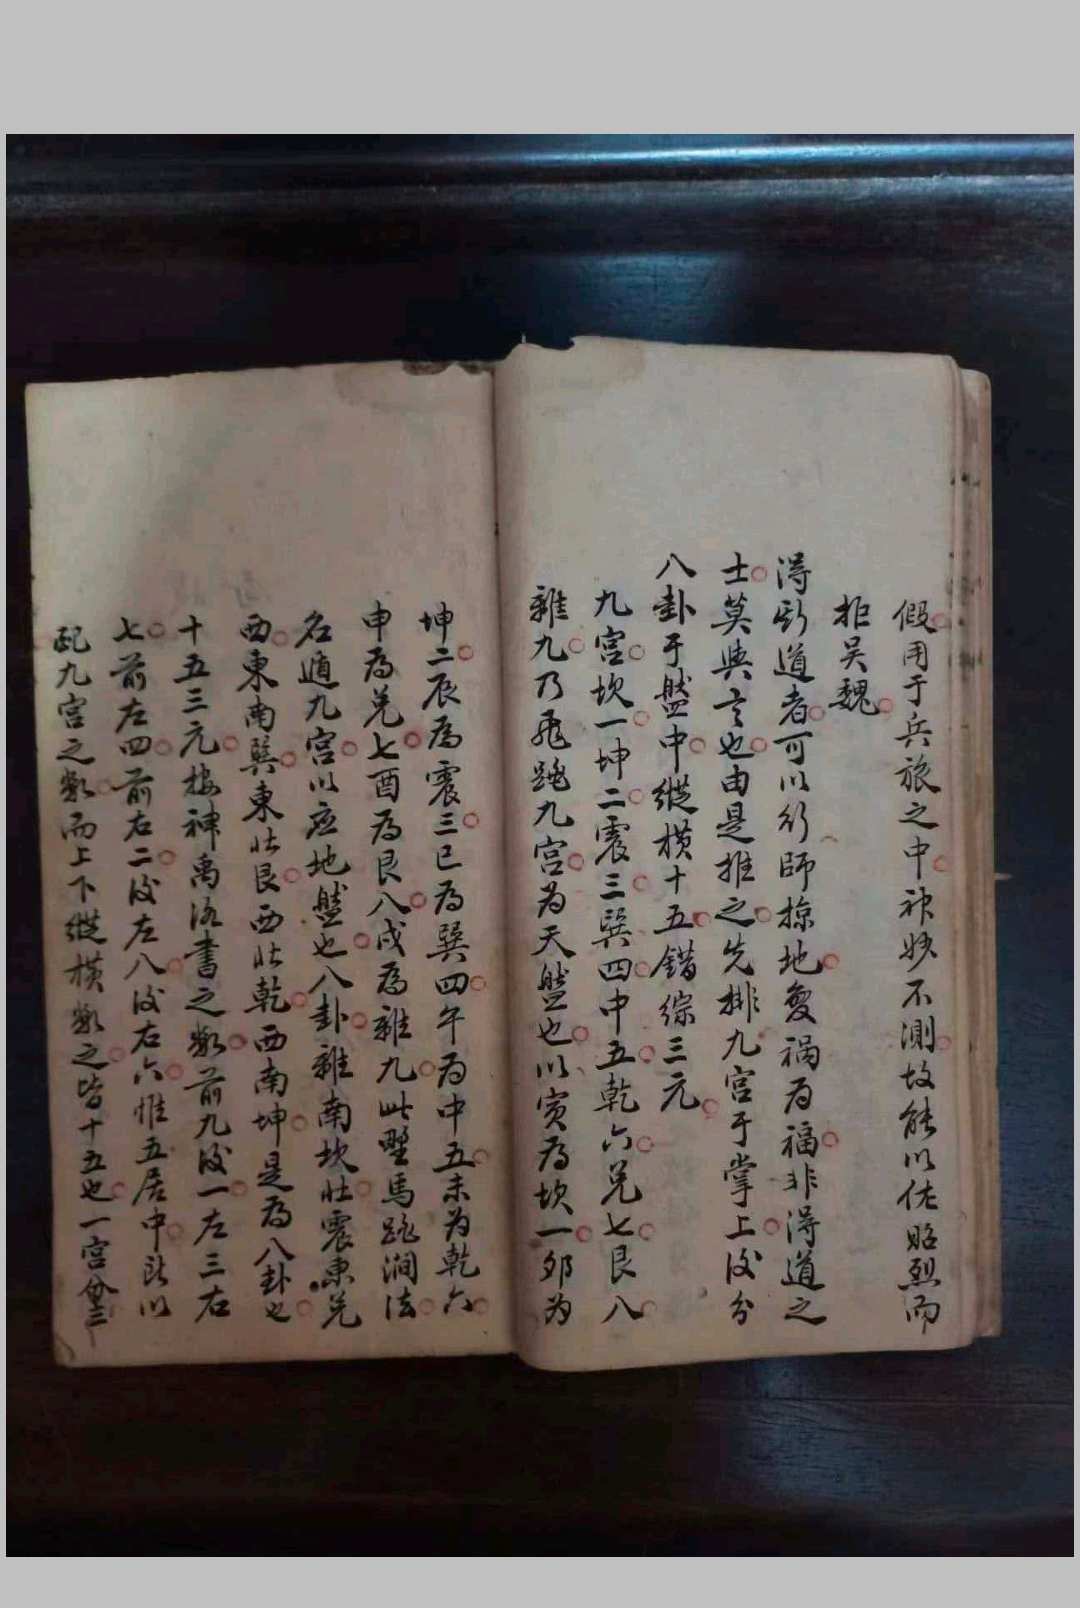 假用于兵旅之中神妙不測故能以佐昭烈而
拒吳魏
得斯道者可以行師掠地變禍為福非得道之
士莫與言也由是推之先排九宫于掌上後分
八卦于盤中縱橫十五錯綜三元
九宫坎一坤二震三巽四中五乾六兌七艮八
離九乃飛跳九宫為天盤也以寅為坎一卯為
坤二辰為震三巳為巽四午為中五未为乾六
申為兌七酉為艮八戌為離九此野馬跳澗法
名遁九宫以应地盤也八卦離南坎北震東兌
西東南巽東北艮西北乾西南坤是為八卦也
十五三元按神禹洛書之數前九後一左三右
七前左四前右二後左八後右六惟五居中以
配九宫之數而上下縱橫數之皆十五也一宫